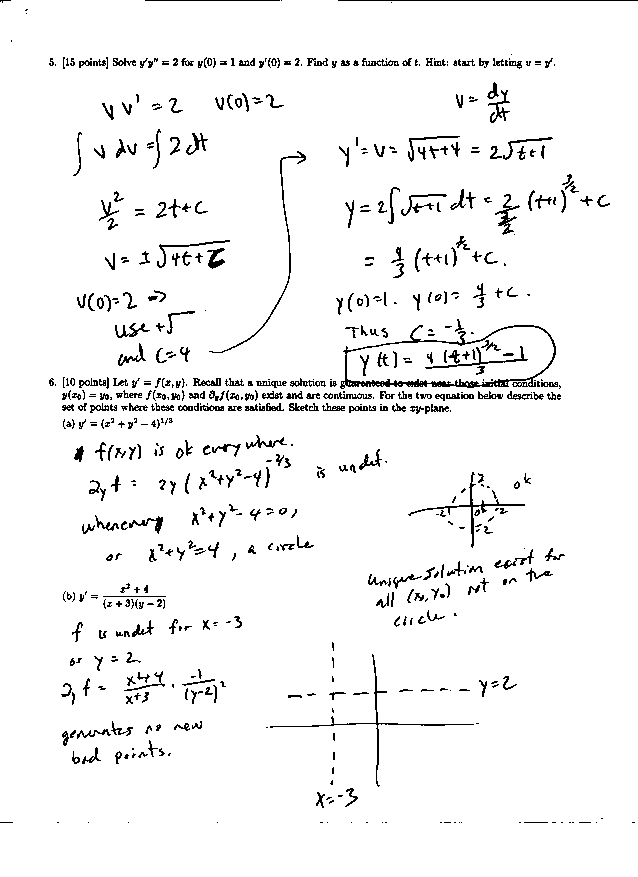 5. [15 points] Solve y'y'' = 2 for y(0) = 1 and y'(0) = 2. Find y as a function of t. Hint: start by letting v = y'.
v v' = 2   v(0)=2
∫ v dv = ∫ 2 dt
v²/2 = 2t+c
v = ± √4t+c
v(0)=2 ⇒
use +√
and C=4
v = dy/dt
y' = v = √4t+4 = 2√t+1
y = 2∫√t+1 dt = 2/(3/2) (t+1)^3/2 + C
= 4/3 (t+1)^3/2 + C.
y(0)=1. y(0)= 4/3 + C.
Thus C = -1/3.
y(t) = (4(t+1)^3/2 - 1)/3
6. [10 points] Let y' = f(x, y). Recall that a unique solution is guaranteed to exist near those initial conditions,
y(x₀) = y₀, where f(x₀, y₀) and ∂yf(x₀, y₀) exist and are continuous. For the two equation below describe the
set of points where these conditions are satisfied. Sketch these points in the xy-plane.
(a) y' = (x² + y² − 4)^1/3
f(x,y) is ok everywhere.
∂yf = 2y (x²+y²-4)^-2/3 is undef.
whenever x²+y²-4=0,
or x²+y²=4, a circle
2
ok
-2
ok
2
-2
Unique solution exist for
all (x₀,y₀) not on the
circle.
(b) y' = (x² + 4)/((x + 3)(y − 2))
f is undef for x = -3
or y = 2
∂yf = (x²+4)/(x+3) · -1/(y-2)²
generates no new
bad points.
y=2
x=-3